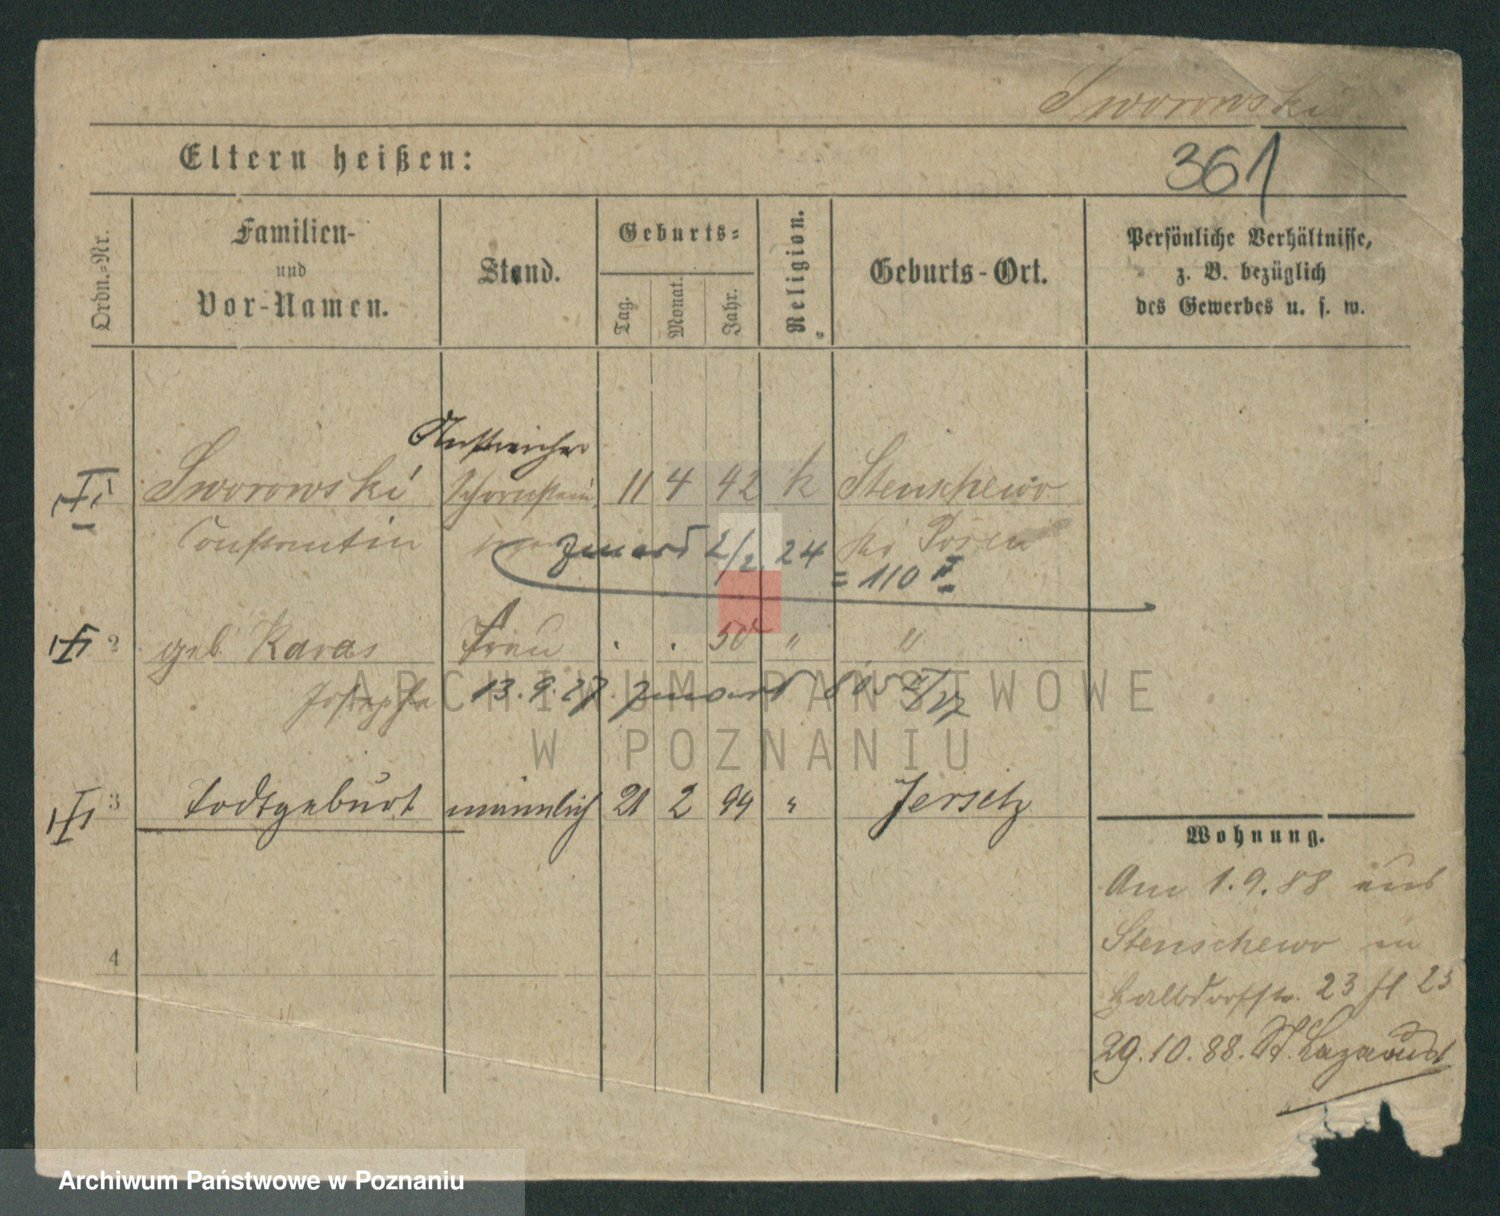 Sworowski
Eltern heißen:
361
Ordn.-Nr.
Familien-
und
Vor-Namen.
Stand.
Geburts-
Tag.
Monat.
Jahr.
Religion.
Geburts-Ort.
Persönliche Verhältnisse,
z. B. bezüglich
des Gewerbes u. s. w.
Anstreicher
1 Sworowski 11 4 42 k Stenschewo
Constantin 2/2 24 Posen
= 110 II
2 geb Karas Frau . . 50 " "
Josepha 13. 9. 27.
ARCHIWUM PAŃSTWOWE
W POZNANIU
3 Todtgeburt männlich 21 2 94 " Jersitz
Wohnung.
4
Am 1. 9. 88 aus
Stenschewo in
Halbdorfstr. 23
29. 10. 88. St. Lazarus
Archiwum Państwowe w Poznaniu